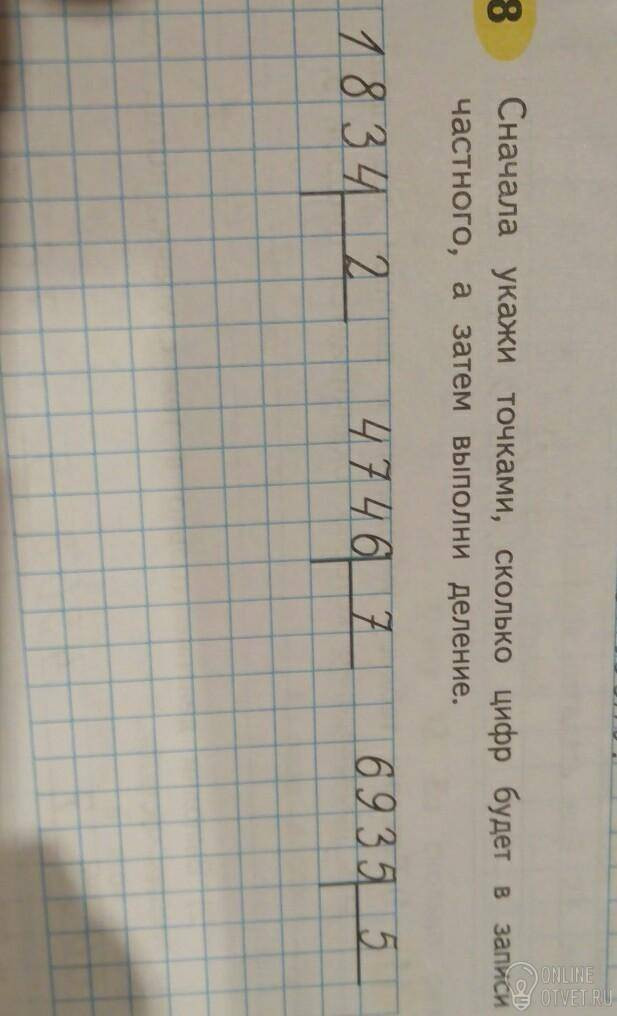 8 Сначала укажи точками, сколько цифр будет в записи
частного, а затем выполни деление.
1834 2 4746 7 6935 5
ONLINE
OTVET.RU